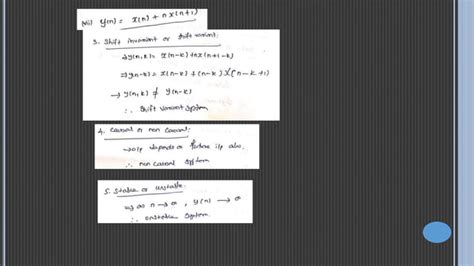 (viii) y(n) = x(n) + n x(n+1)
3. Shift invariant or shift variant:
⇒ y(n,k) = x(n-k) + n x(n+1-k)
⇒ y(n-k) = x(n-k) + (n-k) x(n-k+1)
→ y(n,k) ≠ y(n-k)
∴ Shift variant system
4. Causal or non causal:
→ o/p depends on future i/p also.
∴ non causal system
5. Stable or unstable:
⇒ as n → ∞, y(n) → ∞
∴ unstable system